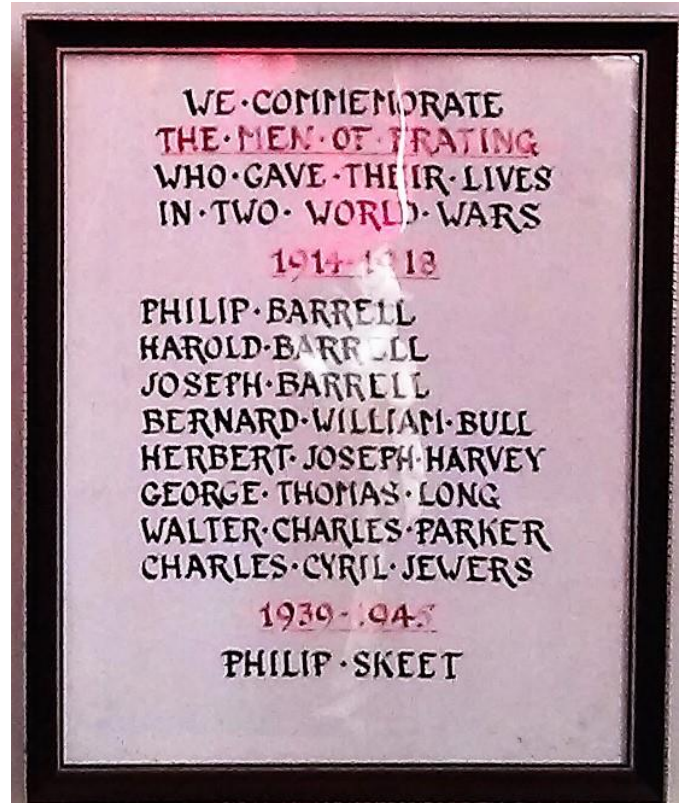 WE·COMMEMORATE
THE·MEN·OF·FRATING
WHO·GAVE·THEIR·LIVES
IN·TWO·WORLD·WARS
1914-1918
PHILIP·BARRELL
HAROLD·BARRELL
JOSEPH·BARRELL
BERNARD·WILLIAM·BULL
HERBERT·JOSEPH·HARVEY
GEORGE·THOMAS·LONG
WALTER·CHARLES·PARKER
CHARLES·CYRIL·JEWERS
1939-1945
PHILIP·SKEET